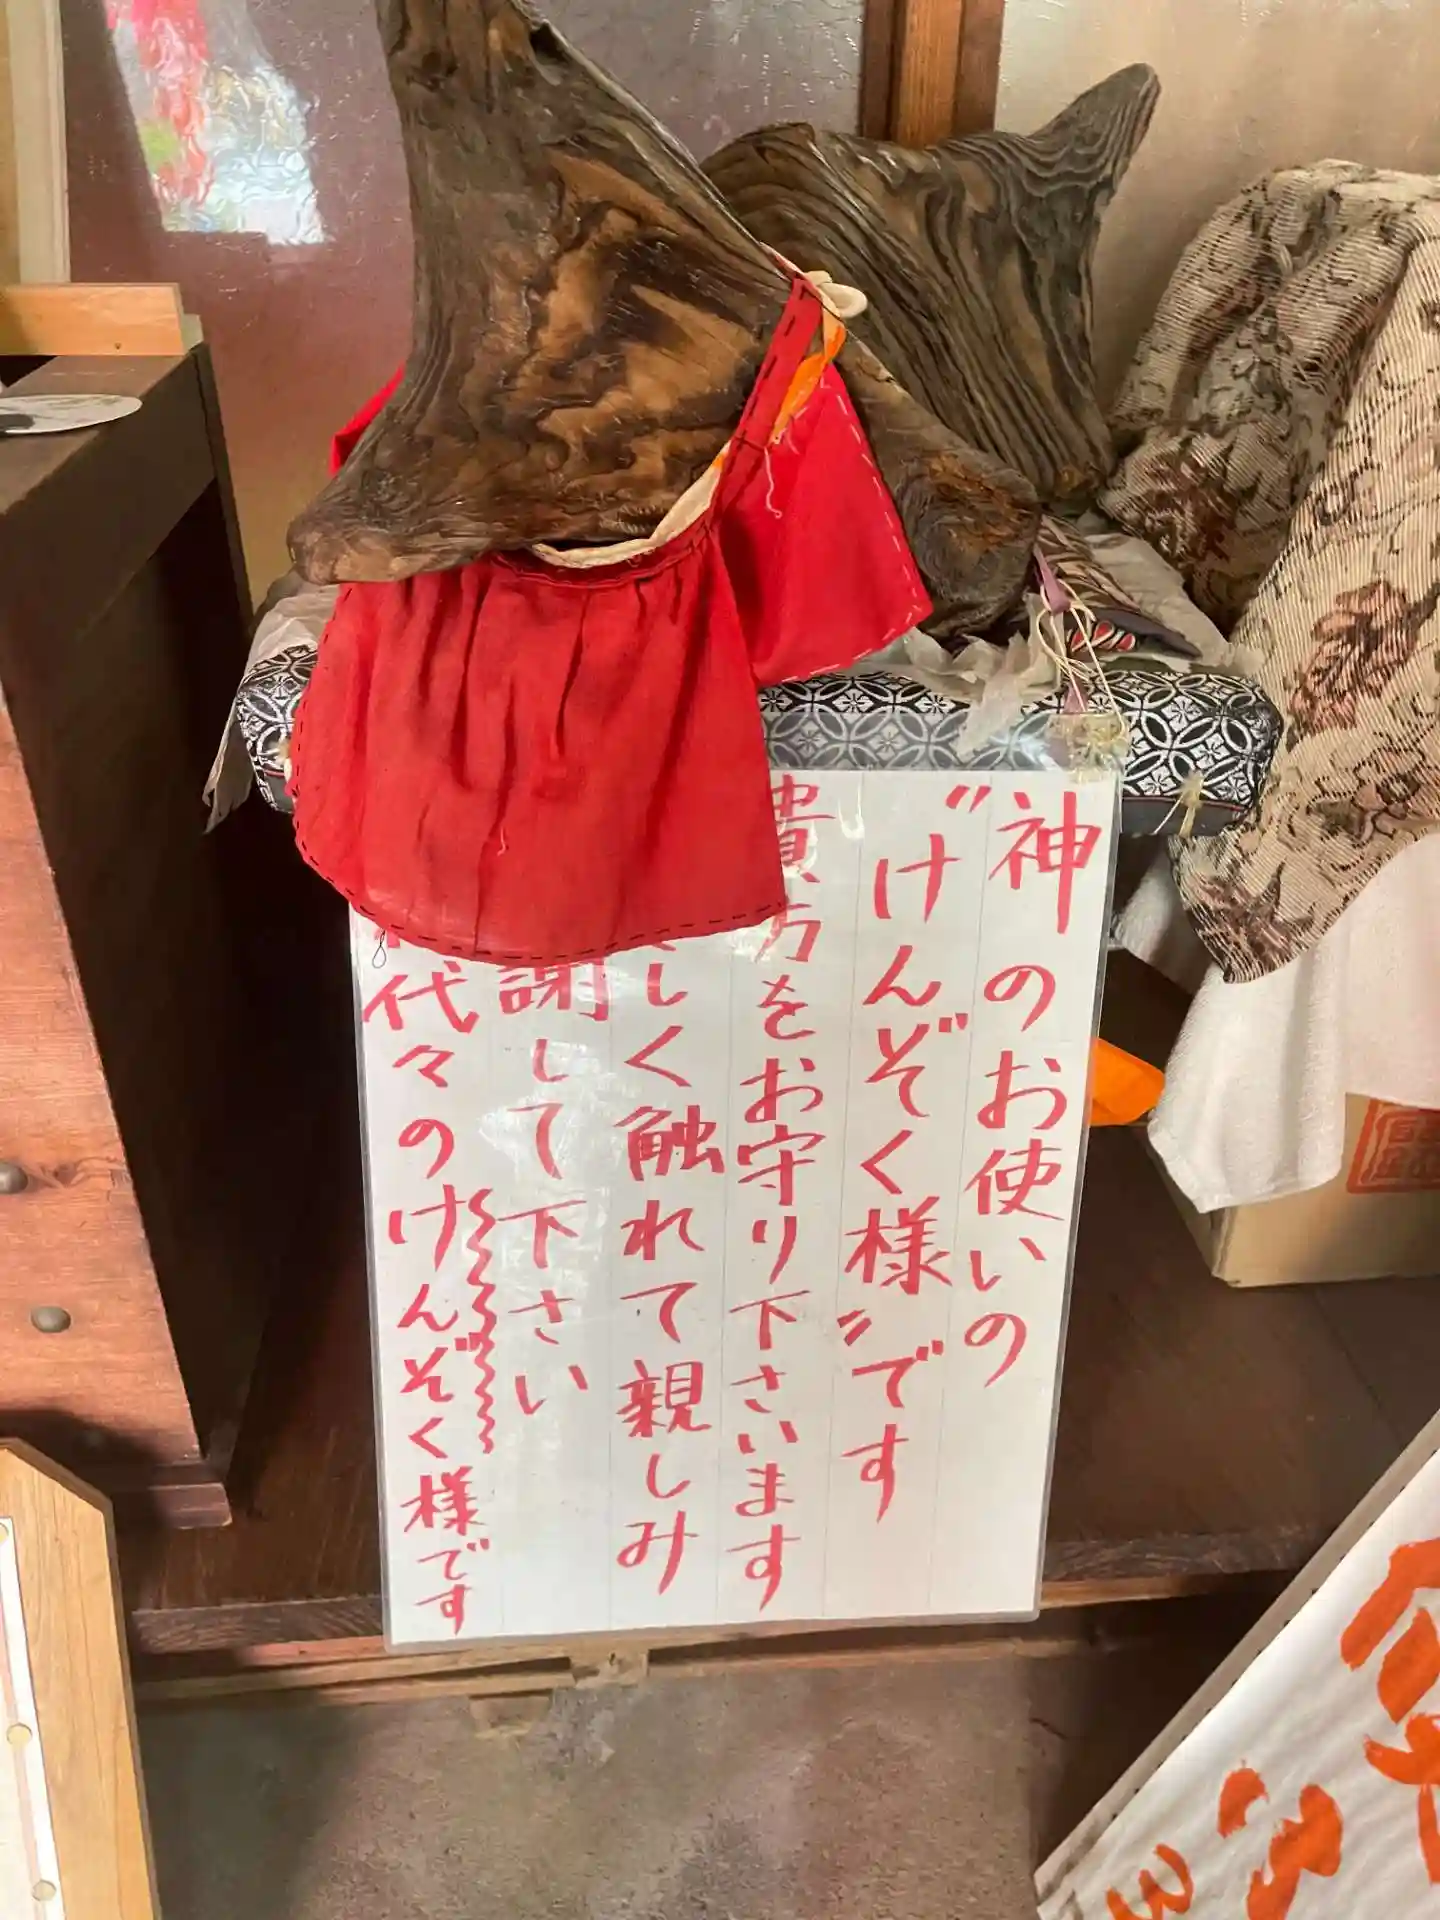 神のお使いの
"けんぞく様"です
貴方をお守り下さいます
しく触れて親しみ
謝して下さい
代々のけんぞく様です